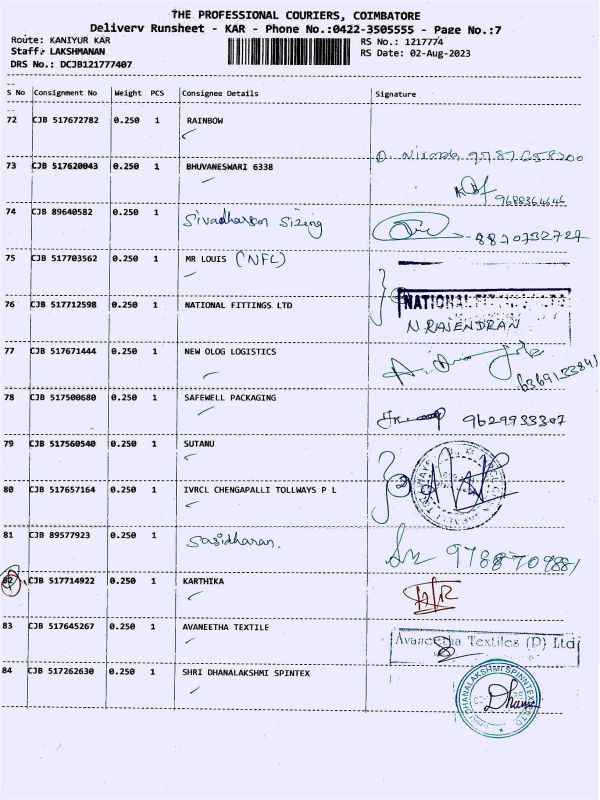 THE PROFESSIONAL COURIERS, COIMBATORE
Delivery Runsheet - KAR - Phone No.:0422-3505555 - Page No.:7
Route: KANIYUR KAR RS No.: 1217774
Staff: LAKSHMANAN RS Date: 02-Aug-2023
DRS No.: DCJB121777407
S No Consignment No Weight PCS Consignee Details Signature
72 CJB 517672782 0.250 1 RAINBOW
73 CJB 517620043 0.250 1 BHUVANESWARI 6338
9688364646
74 CJB 89640582 0.250 1 Sivadharson Sizing 8870732727
75 CJB 517703562 0.250 1 MR LOUIS (NFL)
76 CJB 517712598 0.250 1 NATIONAL FITTINGS LTD NATIONAL FITTINGS LTD
N RAJENDRAN
77 CJB 517671444 0.250 1 NEW OLOG LOGISTICS
78 CJB 517500680 0.250 1 SAFEWELL PACKAGING 9629933307
79 CJB 517560540 0.250 1 SUTANU
80 CJB 517657164 0.250 1 IVRCL CHENGAPALLI TOLLWAYS P L
81 CJB 89577923 0.250 1 Sasidharan. 9788709881
82 CJB 517714922 0.250 1 KARTHIKA
83 CJB 517645267 0.250 1 AVANEETHA TEXTILE Avaneetha Textiles (P) Ltd
84 CJB 517262630 0.250 1 SHRI DHANALAKSHMI SPINTEX
Dhana